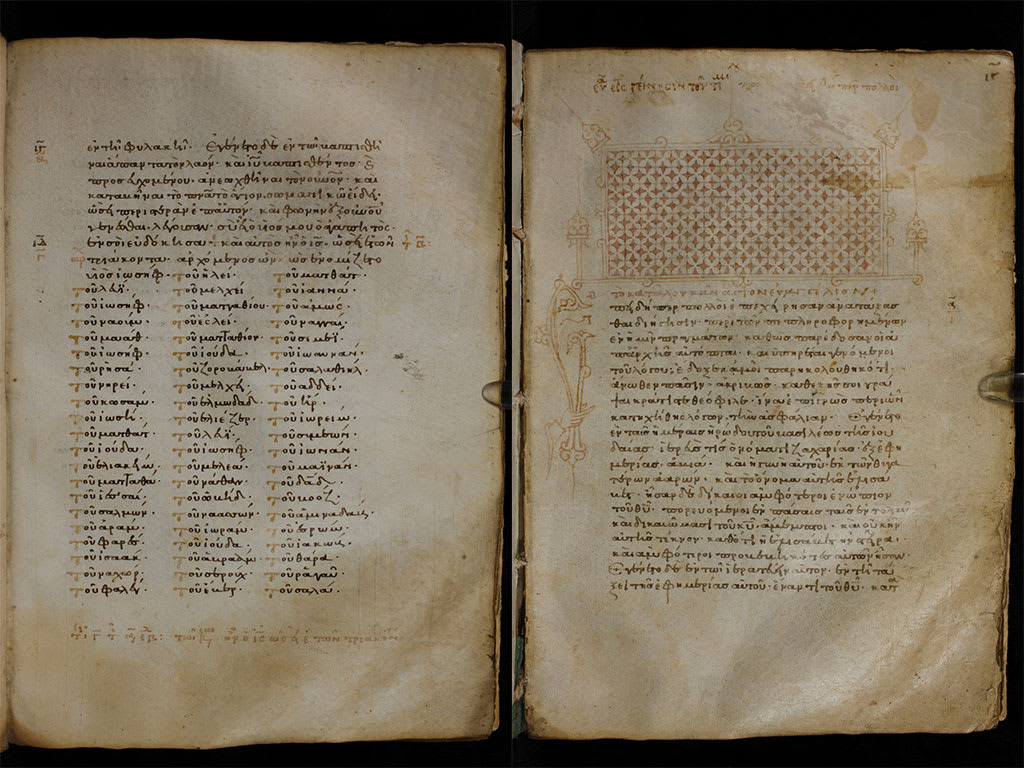 ἐν τῆ φυλακῆ· Ἐγένετο δὲ ἐν τῶ βαπτισθῆ
ναι ἅπαντα τὸν λαόν· καὶ ἰῦ βαπτισθέντος
προσευχομένου, ἀνεωχθῆναι τὸν οὐνον· καὶ
καταβῆναι τὸ πνα τὸ ἅγιον σωματικῶ εἴδει,
ὡσεὶ περιστερὰν ἐπ αὐτον· καὶ φωνὴν ἐξ οὐνου
γενέσθαι λέγουσαν· σὺ εἶ ὁ υἱός μου ὁ ἀγαπητὸς·
ἐν σοὶ εὐδόκησα· καὶ αὐτὸς ἦν ὁ ις ὡσεὶ ἐτῶν
τριάκοντα ἀρχόμενος ὢν, ὡς ἐνομίζετο
υἱὸς ἰωσὴφ· τοῦ ἡλεί· τοῦ ματθάτ·
τοῦ λευί· τοῦ μελχεί τοῦ ἰαννά·
τοῦ ἰωσὴφ· τοῦ ματταθίου τοῦ ἀμώς·
τοῦ ναούμ· τοῦ ἐσλεί· τοῦ ναγγαί·
τοῦ μαάθ· τοῦ ματταθίου· τοῦ σεμεΐ·
τοῦ ἰωσήφ· τοῦ ἰούδα· τοῦ ἰωαννάν·
τοῦ ῥησά· τοῦ ζοροβάβελ· τοῦ σαλαθιήλ·
τοῦ νηρεί· τοῦ μελχί· τοῦ ἀδδεί·
τοῦ κωσάμ· τοῦ ἐλμωδάμ· τοῦ ἤρ·
τοῦ ἰωσῆ· τοῦ ἐλιέζερ· τοῦ ἰωρείμ·
τοῦ ματθάτ· τοῦ λευί· τοῦ συμεών·
τοῦ ἰούδα· τοῦ ἰωσήφ· τοῦ ἰωνάν·
τοῦ ἐλιακείμ· τοῦ μελεά· τοῦ μαϊνάν·
τοῦ ματταθά· τοῦ ναθάν· τοῦ δαδ·
τοῦ ἰεσσαί· τοῦ ὠβήδ· τοῦ βοόζ·
τοῦ σαλμών· τοῦ ναασσών· τοῦ ἀμιναδάβ·
τοῦ ἀράμ· τοῦ ἰωράμ· τοῦ ἐσρώμ·
τοῦ φαρές· τοῦ ἰούδα· τοῦ ἰακώβ·
τοῦ ἰσαάκ· τοῦ ἀβραάμ· τοῦ θάρα·
τοῦ ναχώρ· τοῦ σερούχ· τοῦ ῥαγαῦ·
τοῦ φαλέκ· τοῦ ἔβερ· τοῦ σαλά·
εἰς γέννησιν τοῦ
τὸ κατὰ λουκᾶν ἅγιον εὐαγγέλιον
πειδήπερ πολλοὶ ἐπεχείρησαν ἀνατάξασ
θαι διήγησιν περὶ τῶν πεπληροφορημένων
ἐν ἡμῖν πραγμάτων· καθὼς παρέδοσαν οἱ ἀ
π ἀρχῆς αὐτόπται· καὶ ὑπηρέται γενόμενοι
τοῦ λόγου· ἔδοξε κἀμοὶ παρηκολουθηκότι
ἄνωθεν πᾶσιν ἀκριβῶς· καθεξῆς σοι γρά
ψαι κράτιστε θεόφιλε· ἵνα ἐπιγνῶς περὶ ὧν
κατηχήθης λόγων, τὴν ἀσφάλειαν· Ἐγένετο
ἐν ταῖς ἡμέραις ἡρώδου τοῦ βασιλέως τῆς ἰου
δαίας· ἱερεύς τις ὀνόματι ζαχαρίας· ἐξ ἐφη
μερίας ἀβιά· καὶ ἡ γυνὴ αὐτοῦ ἐκ τῶν θυγα
τέρων ἀαρών· καὶ τὸ ὄνομα αὐτῆς ἐλισά
βετ· ἦσαν δὲ δίκαιοι ἀμφότεροι ἐνώπιον
τοῦ θυ· πορευόμενοι ἐν πάσαις ταῖς ἐντολαῖς
καὶ δικαιώμασι τοῦ κυ ἄμεμπτοι· καὶ οὐκ ἦν
αὐτοῖς τέκνον· καθότι ἡ ἐλισάβετ ἦν στεῖρα·
καὶ ἀμφότεροι προβεβηκότες
Ἐγένετο δὲ ἐν τῶ ἱερατεύειν αὐτὸν· ἐν τῆ τά
ξει τῆς ἐφημερίας αὐτοῦ· ἔναντι τοῦ θυ· κατ